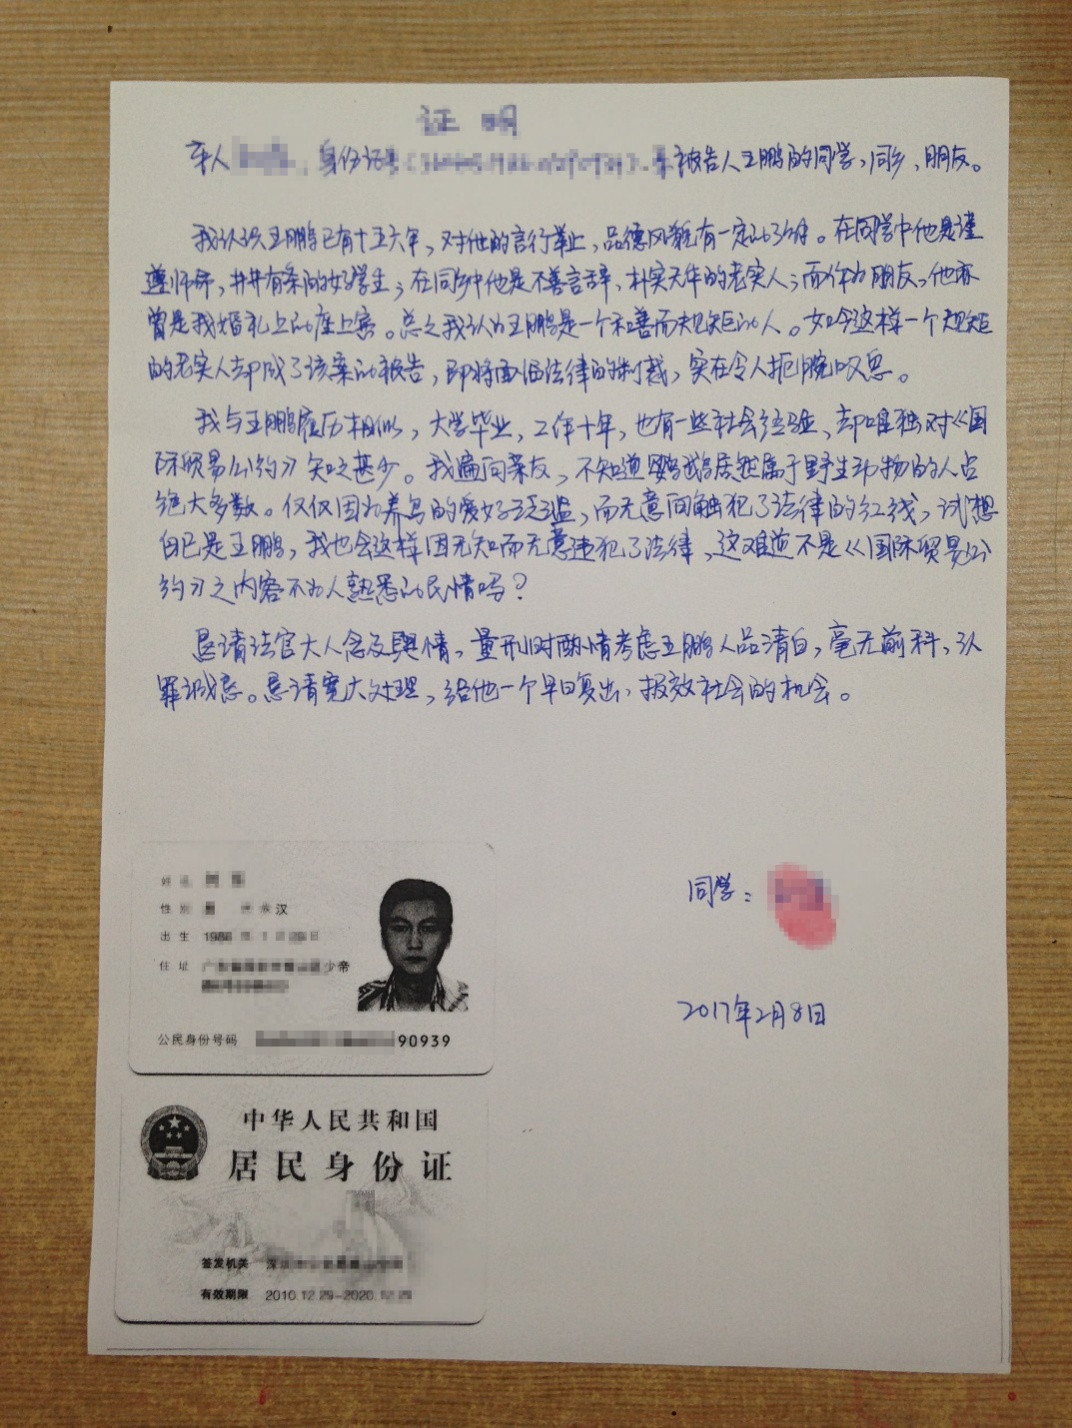 证明
本人 身份证号 系被告人王鹏的同学、同乡、朋友。
我认识王鹏已有十五六年，对他的言行举止，品德风貌有一定的了解。在同学中他是谨
遵师命，井井有条的好学生；在同乡中他是不善言辞，朴实无华的老实人；而作为朋友，他亦
曾是我婚礼上的座上宾。总之我认为王鹏是一个和善而规矩的人。如今这样一个规矩
的老实人却成了该案的被告，即将面临法律的制裁，实在令人扼腕叹息。
我与王鹏履历相似，大学毕业，工作十年，也有一些社会经验，却唯独对《国
际贸易公约》知之甚少。我遍问亲友，不知道鹦鹉居然属于野生动物的人占
绝大多数。仅仅因为养鸟的爱好泛滥，而无意间触犯了法律的红线，试想
自己是王鹏，我也会这样因无知而无意违犯了法律，这难道不是《国际贸易公
约》之内容不为人熟悉的民情吗？
恳请法官大人念及舆情，量刑时酌情考虑王鹏人品清白，毫无前科，认
罪诚恳。恳请宽大处理，给他一个早日复出、报效社会的机会。
同学：
2017年2月8日
姓名
性别 汉
出生
住址 少帝
公民身份号码 90939
中华人民共和国
居民身份证
签发机关
有效期限 2010.12.29-2020.12.29